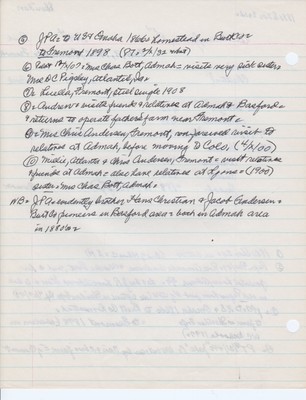 ⑤ JPA = to USA Omaha 1860s homestead in Burt Co =
to Fremont 1898 (PT = 3/31
⑥ Mrs Chas Bott, Admah = visits very sick sister =
Mrs DC Pigsley, Atlantic, Ia =
Fremont, still single 1908
= Andrew = visits friends & relatives at Admah &
returns to operate father's farm near Fremont =
= Mrs Chris Andersen, Fremont, visit to
relatives at Admah, before moving to Colo, (4/ /00)
⑩ Atlanta & Chris Andersen, Fremont = visit relatives
& friends at Admah = also have relatives at (1900)
sister = Mrs Chas Bott, Admah =
NB = JPA evidently brother Hans Christian & Jacob Andersen =
Burt Co pioneers in area = both in Admah area
in 1880s =